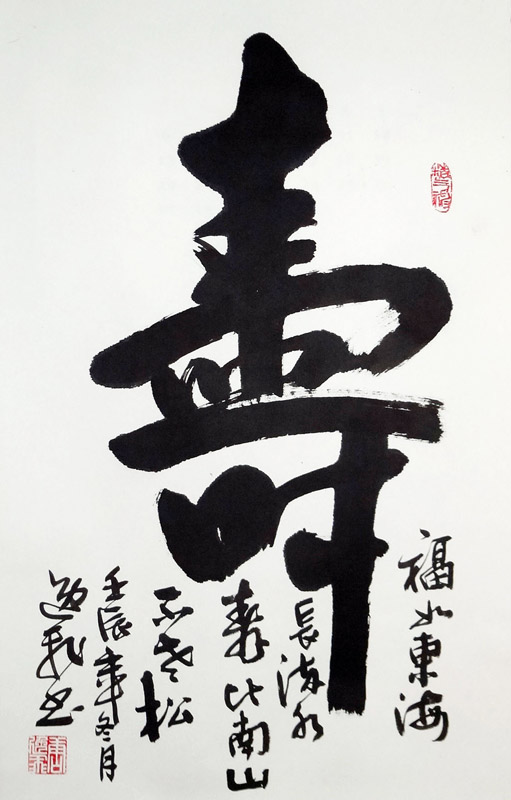 壽
福如東海
長流水
壽比南山
不老松
壬辰年冬月
书